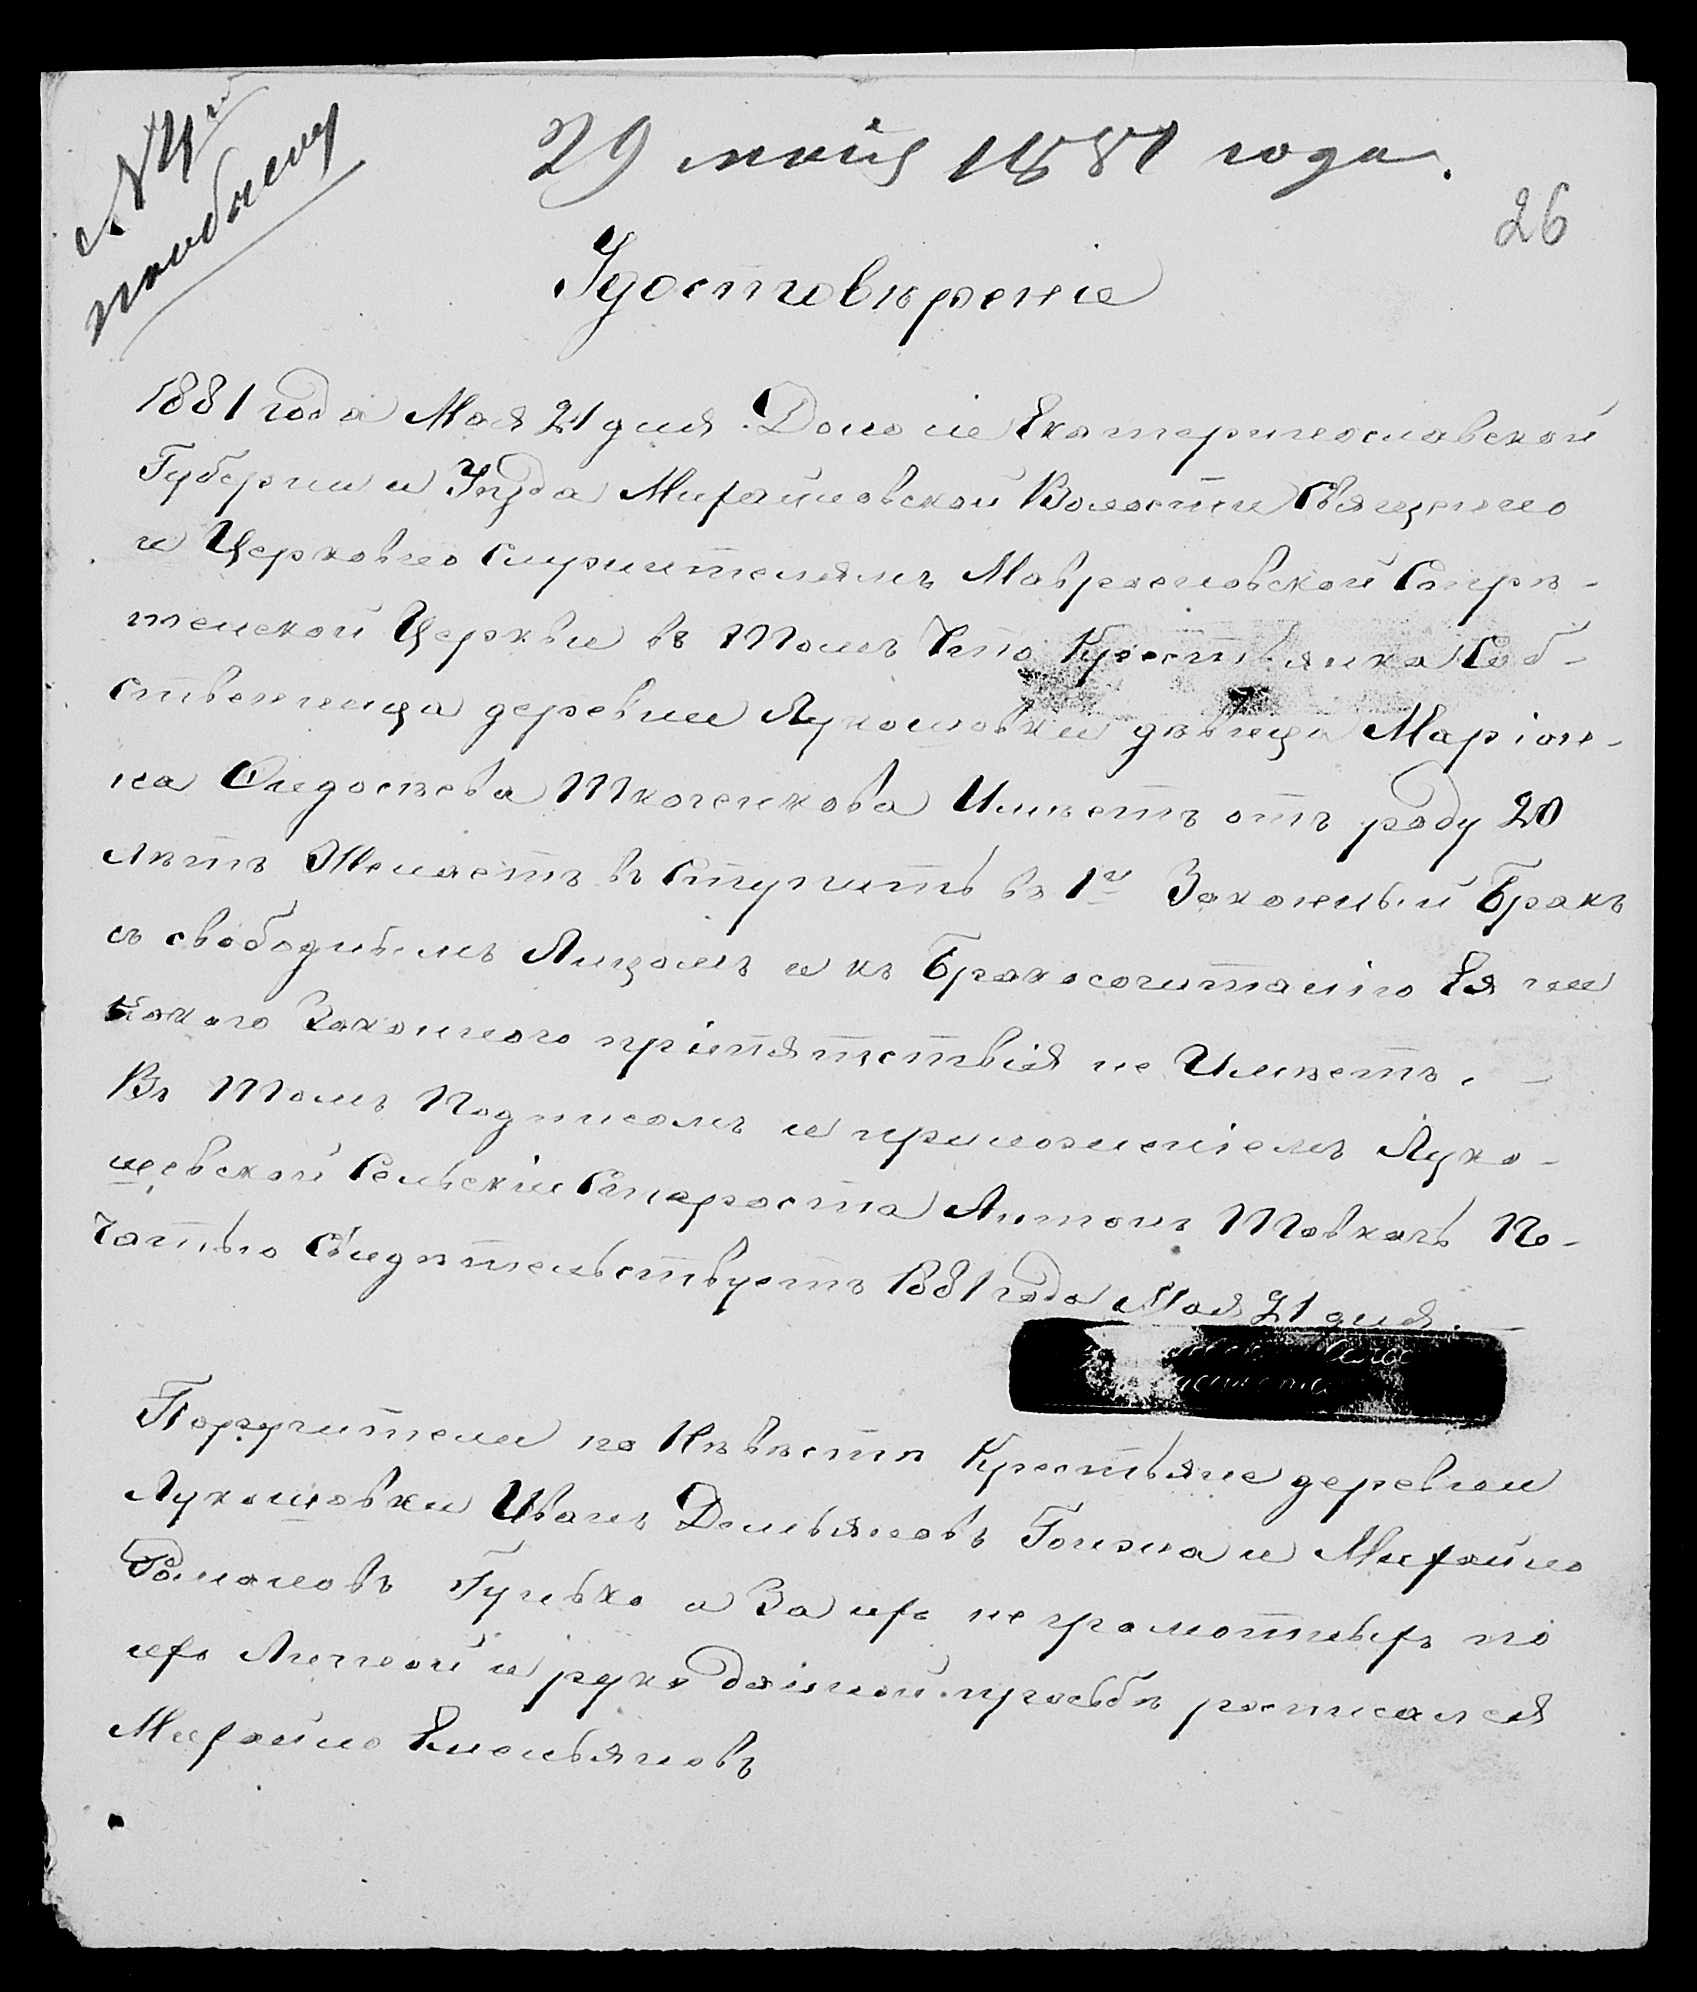 № 4й
пообыску
29 мая 1881 года.
26
Удостовѣреніе
1881 года Мая 21 дня. Дано сіе Екатеринославской
Губерніи и Уѣзда Михайловской Волости Священно
и Церковно Служителямъ Маврееновской Стрѣ-
тенской Церкви въ Томъ Что Крестьянка Соб-
ственница деревни Лукошовки дѣвица Маріон-
на Федосѣева Ткаченкова Имѣетъ отъ роду 20
лѣтъ Желаетъ въ Ступить въ 1й Законный Бракъ
съ свободнымъ Лицомъ и къ Бракосочитанію Ея ни
какого Законного пріпятствія не Имѣетъ.
Въ Томъ Подписомъ и приложеніемъ Луко-
шевской Сельскій Староста Антонъ Товкачъ Пе-
чатью Свидѣтельствуетъ 1881 года Мая 21 дня.
Поручители по Нѣвѣстѣ Крестьяне деревни
Лукошовки Иванъ Демьяновъ Гонжа и Михайло
Романовъ Гунько а За ихъ неграмотныхъ по
ихъ Личной и рукоданной прозьбѣ росписался
Михайло Емельяновъ